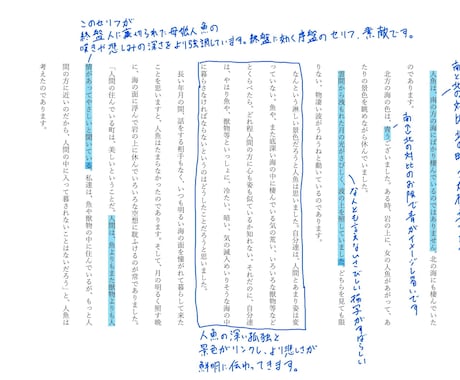 人魚は、南の方の海にばかり棲んでいるのではありません。北の海にも棲んでいた
のであります。
北方の海の色は、青うございました。ある時、岩の上に、女の人魚があがって、あ
南と北の対比のお陰で青がイメージし易いです
たりの景色を眺めながら休んでいました。
雲間から洩れた月の光がさびしく、波の上を照していました。どちらを見ても限
なんとも言えないさびしい様子がすばらしい
りない、物凄い波がうねうねと動いているのであります。
なんという淋しい景色だろうと人魚は思いました。自分達は、人間とあまり姿は変
っていない。魚や、また底深い海の中に棲んでいる気の荒い、いろいろな獣物等など
とくらべたら、どれ程人間の方に心も姿も似ているか知れない。それだのに、自分達
は、やはり魚や、獣物等といっしょに、冷たい、暗い、気の滅入りそうな海の中
に暮らさなければならないというのはどうしたことだろうと思いました。
人魚の深い孤独と
景色がリンクし、より悲しさが
鮮明に伝わってきます。
長い年月の間、話をする相手もなく、いつも明るい海の面を憧がれて暮らして来た
ことを思いますと、人魚はたまらなかったのであります。そして、月の明るく照す晩
に、海の面に浮んで岩の上に休んでいろいろな空想に耽けるのが常でありました。
「人間の住んでいる町は、美しいということだ。人間は、魚よりもまた獣物よりも人
情があってやさしいと聞いている。私達は、魚や獣物の中に住んでいるが、もっと人
このセリフが
終盤人に裏切られた母親人魚の
嘆きや悲しみの深さをより強調しています。終盤に効く序盤のセリフ、素敵です。
間の方に近いのだから、人間の中に入って暮されないことはないだろう」と、人魚は
考えたのであります。